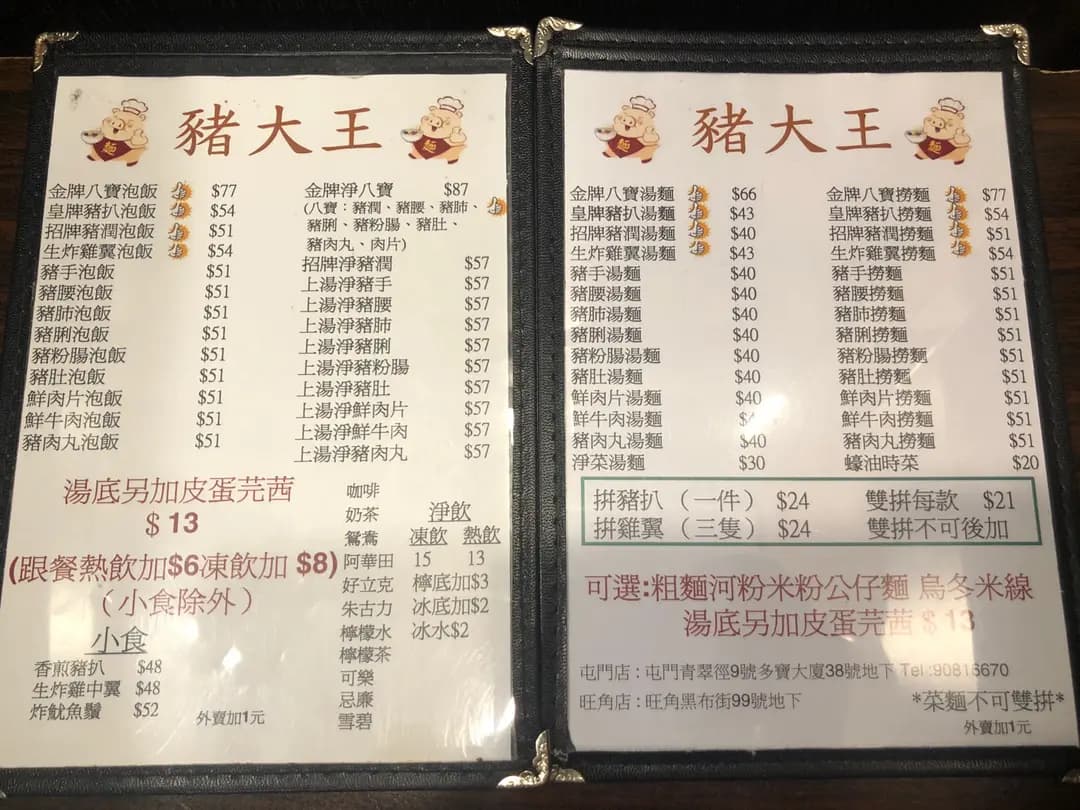 豬大王
金牌八寶泡飯 $77
皇牌豬扒泡飯 $54
招牌豬潤泡飯 $51
生炸雞翼泡飯 $54
豬手泡飯 $51
豬腰泡飯 $51
豬肺泡飯 $51
豬脷泡飯 $51
豬粉腸泡飯 $51
豬肚泡飯 $51
鮮肉片泡飯 $51
鮮牛肉泡飯 $51
豬肉丸泡飯 $51
金牌淨八寶 $87
(八寶：豬潤、豬腰、豬肺、
豬脷、豬粉腸、豬肚、
豬肉丸、肉片)
招牌淨豬潤 $57
上湯淨豬手 $57
上湯淨豬腰 $57
上湯淨豬肺 $57
上湯淨豬脷 $57
上湯淨豬粉腸 $57
上湯淨豬肚 $57
上湯淨鮮肉片 $57
上湯淨鮮牛肉 $57
上湯淨豬肉丸 $57
湯底另加皮蛋芫茜
$ 13
(跟餐熱飲加$6凍飲加 $8)
（小食除外）
小食
香煎豬扒 $48
生炸雞中翼 $48
炸魷魚鬚 $52
外賣加1元
咖啡
奶茶
鴛鴦
阿華田
好立克
朱古力
檸檬水
檸檬茶
可樂
忌廉
雪碧
淨飲
凍飲 熱飲
15 13
檸底加$3
冰底加$2
冰水$2
豬大王
金牌八寶湯麵 $66
皇牌豬扒湯麵 $43
招牌豬潤湯麵 $40
生炸雞翼湯麵 $43
豬手湯麵 $40
豬腰湯麵 $40
豬肺湯麵 $40
豬脷湯麵 $40
豬粉腸湯麵 $40
豬肚湯麵 $40
鮮肉片湯麵 $40
鮮牛肉湯麵
豬肉丸湯麵 $40
淨菜湯麵 $30
金牌八寶撈麵 $77
皇牌豬扒撈麵 $54
招牌豬潤撈麵 $51
生炸雞翼撈麵 $54
豬手撈麵 $51
豬腰撈麵 $51
豬肺撈麵 $51
豬脷撈麵 $51
豬粉腸撈麵 $51
豬肚撈麵 $51
鮮肉片撈麵 $51
鮮牛肉撈麵 $51
豬肉丸撈麵 $51
蠔油時菜 $20
拼豬扒（一件） $24 雙拼每款 $21
拼雞翼（三隻） $24 雙拼不可後加
可選:粗麵河粉米粉公仔麵 烏冬米線
湯底另加皮蛋芫茜 $ 13
屯門店：屯門青翠徑9號多寶大廈38號地下 Tel :90816670
旺角店：旺角黑布街99號地下
*菜麵不可雙拼*
外賣加1元